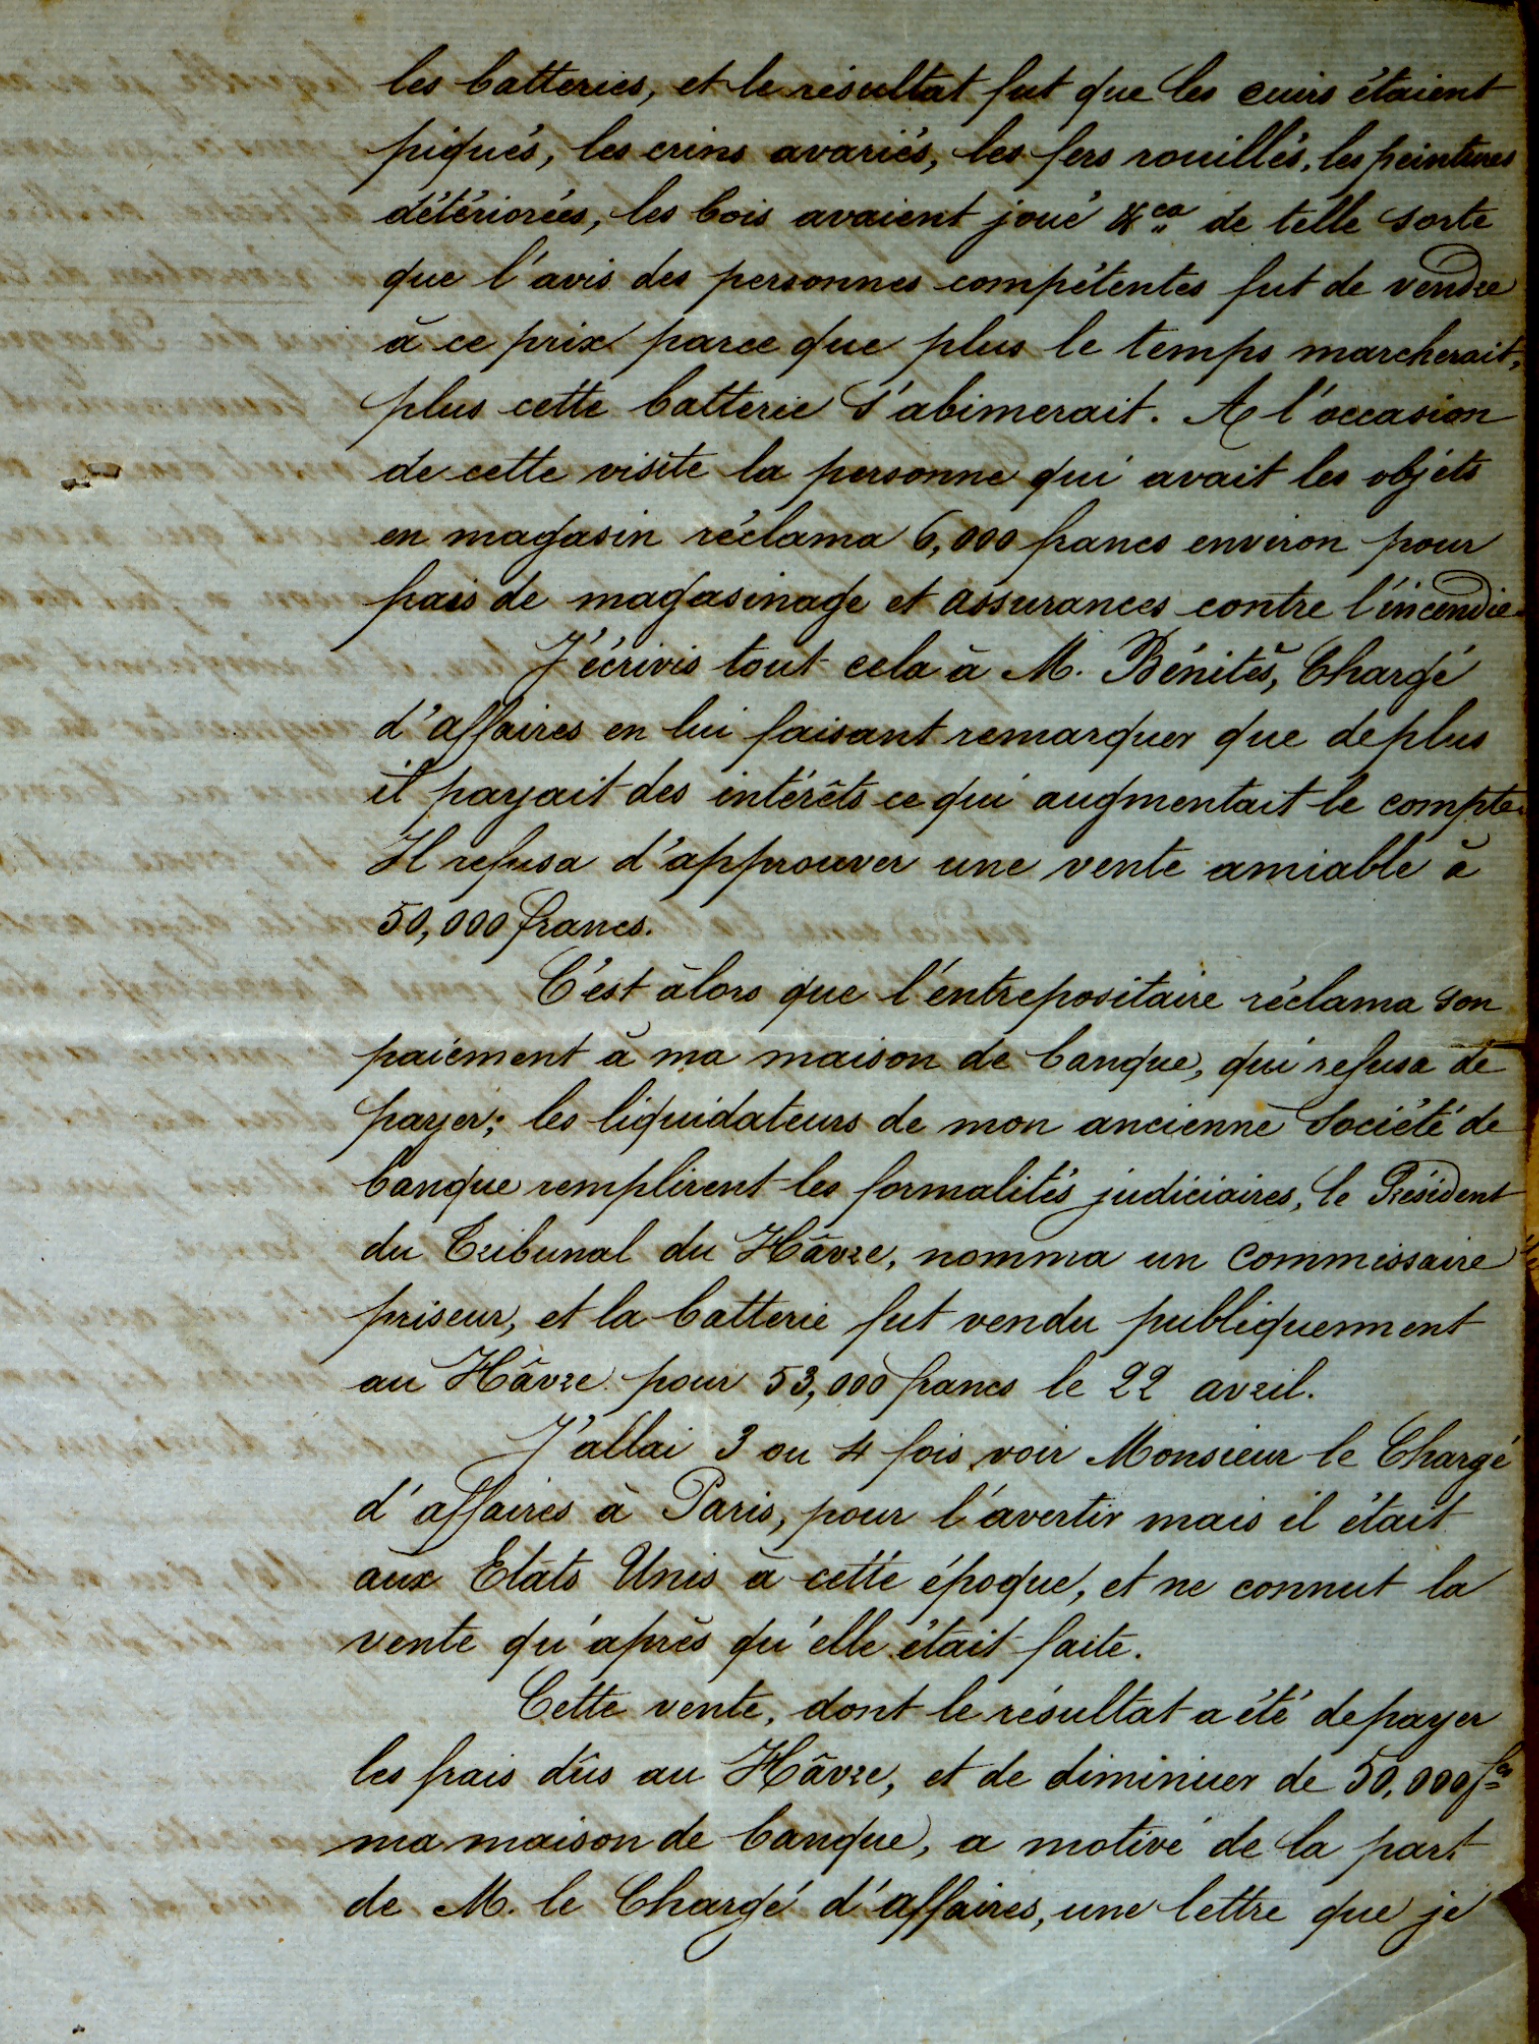 les batteries, et le résultat fut que les cuirs étaient
piqués, les crins avariés, les fers rouillés, les peintures
détériorées, les bois avaient joué &ca de telle sorte
que l'avis des personnes compétentes fut de vendre
à ce prix parce que plus le temps marcherait,
plus cette batterie s'abimerait. A l'occasion
de cette visite la personne qui avait les objets
en magasin réclama 6,000 francs environ pour
frais de magasinage et assurances contre l'incendie.
J'écrivis tout cela à M. Bénitès, Chargé
d'affaires en lui faisant remarquer que de plus
il payait des intérêts ce qui augmentait le compte.
Il refusa d'approuver une vente amiable à
50,000 francs.
C'est àlors que l'entrepositaire réclama son
paiement à ma maison de banque, qui refusa de
payer; les liquidateurs de mon ancienne Société de
banque remplirent les formalités judiciaires, le Président
du Tribunal du Hâvre, nomma un commissaire
priseur, et la batterie fut vendu publiquement
au Hâvre pour 53,000 francs le 22 avril.
J'allai 3 ou 4 fois voir Monsieur le Chargé
d'affaires à Paris, pour l'avertir mais il était
aux Etats Unis à cette époque, et ne connut la
vente qu'après qu'elle était faite.
Cette vente, dont le résultat a été de payer
les frais dûs au Hâvre, et de diminuer de 50,000 fcs
ma maison de banque, a motivé de la part
de M. le Chargé d'affaires, une lettre que je